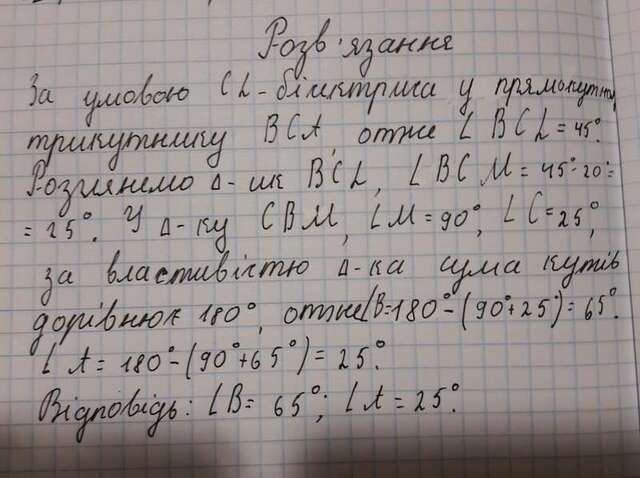 Розв'язання
За умовою CL-бісектриса у прямокутно
трикутнику BCA, отже ∠BCL=45°.
Розглянемо Δ-ик BCL, ∠BCM=45°-20°=
=25°. У Δ-ку CBM, ∠M=90°, ∠C=25°,
за властивістю Δ-ка сума кутів
дорівнює 180°, отже∠B=180°-(90°+25°)=65°.
∠A=180°-(90°+65°)=25°.
Відповідь: ∠B=65°; ∠A=25°.